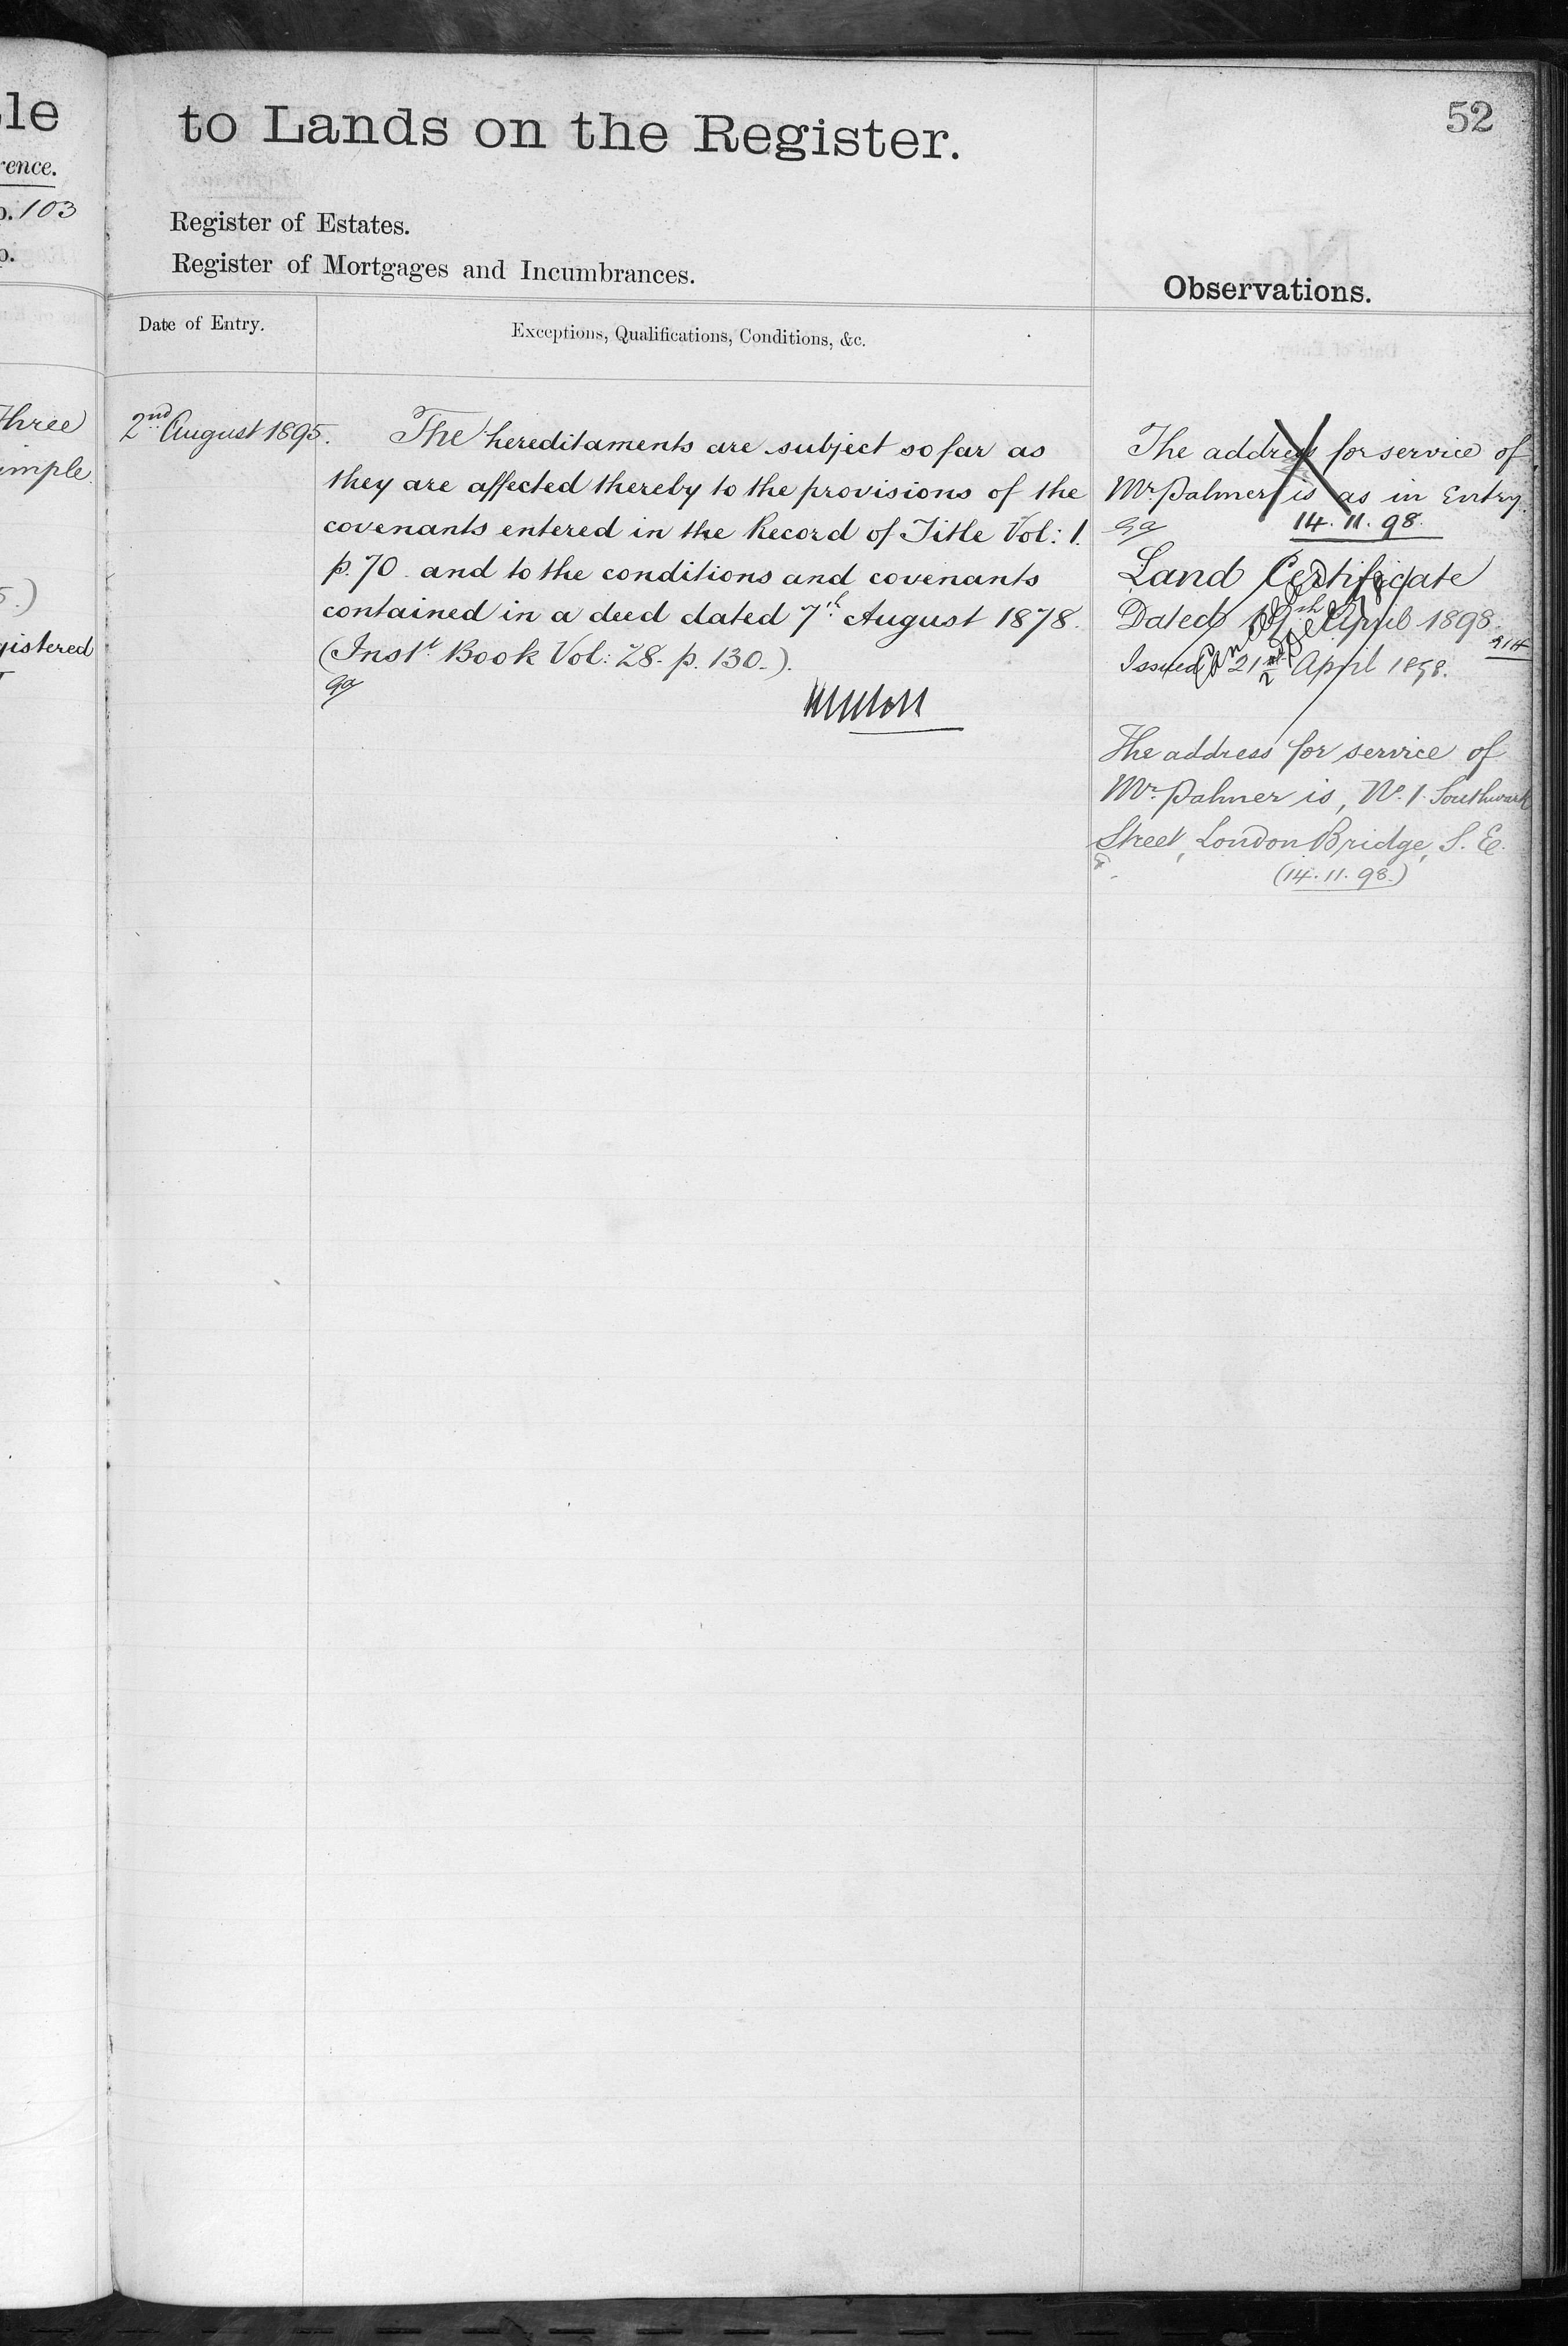 le
rence.
p. 103
p.
Three
imple.
5.)
gistered
52
to Lands on the Register.
Register of Estates.
Register of Mortgages and Incumbrances.
Observations.
Date of Entry.
Exceptions, Qualifications, Conditions, &c.
2nd August 1895.
The hereditaments are subject so far as
they are affected thereby to the provisions of the
covenants entered in the Record of Title Vol: 1.
p. 70 and to the conditions and covenants
contained in a deed dated 7th August 1878.
(Inst. Book Vol: 28. p. 130.).
The address for service of
Mr. Palmer is as in Entry.
14. 11. 98.
Land Certificate
Dated 19th April 1898.
Issued 21st April 1898.
Cancelled
The address for service of
Mr. Palmer is, No. 1 Southwark
Street, London Bridge, S. E.
(14. 11. 98.)